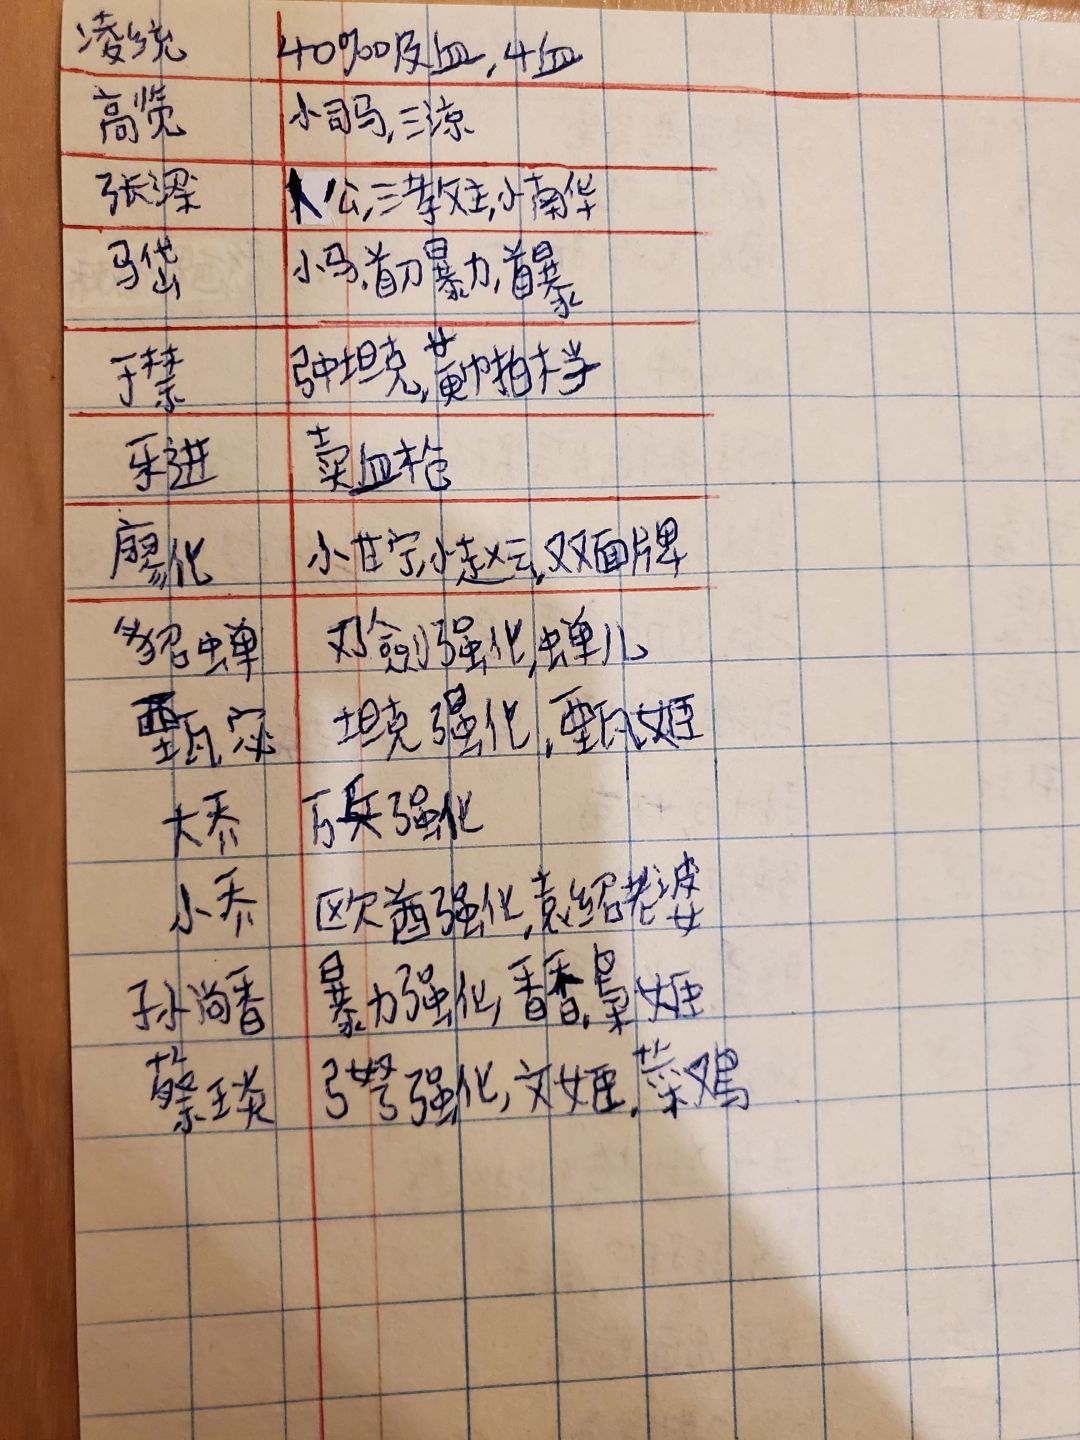 凌统 40%吸血,4血
高览 小司马,三凉
张梁 人公,三教主,小南华
马岱 小马,首刀暴力,首暴
于禁 弓中坦克,黄巾拍卡学
乐进 卖血枪
廖化 小甘宁,小赵云,双面牌
貂蝉 双剑强化,蝉儿
甄宓 坦克强化,甄姬
大乔 万兵强化
小乔 欧酋强化,袁绍老婆
孙尚香 暴力强化,香香,枭姬
蔡琰 弓弩强化,文姬,菜鸡